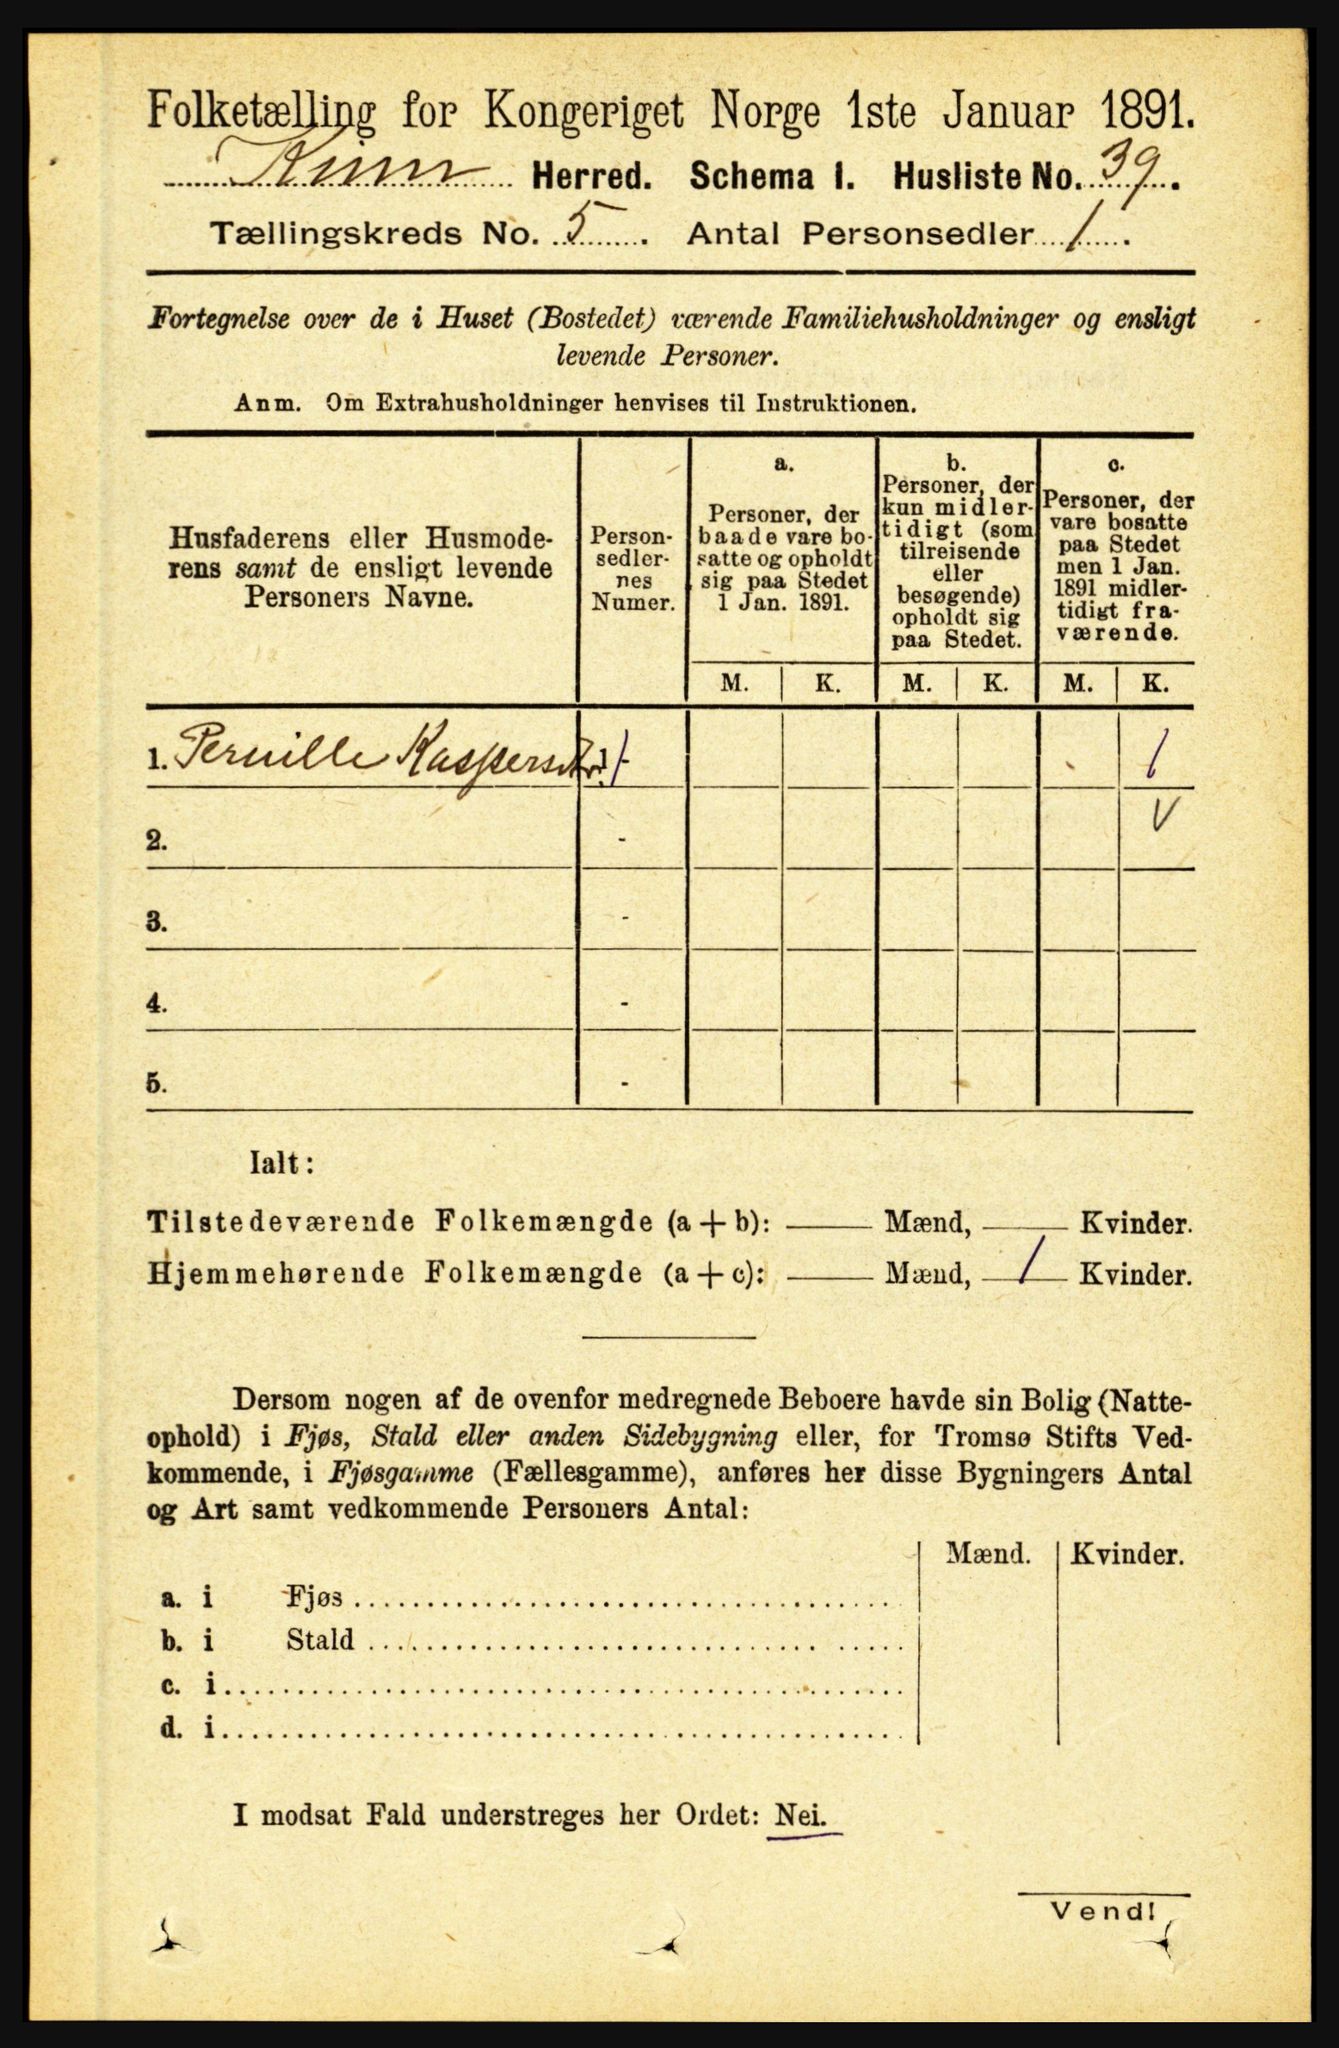 Folketælling for Kongeriget Norge 1ste Januar 1891.
Kinn Herred. Schema I. Husliste No. 39.
Tællingskreds No. 5. Antal Personsedler 1.
Fortegnelse over de i Huset (Bostedet) værende Familiehusholdninger og ensligt
levende Personer.
Anm. Om Extrahusholdninger henvises til Instruktionen.
Husfaderens eller Husmode-
rens samt de ensligt levende
Personers Navne.
Person-
sedler-
nes
Numer.
a.
Personer, der
baade vare bo-
satte og opholdt
sig paa Stedet
1 Jan. 1891.
b.
Personer, der
kun midler-
tidigt (som
tilreisende
eller
besøgende)
opholdt sig
paa Stedet.
c.
Personer, der
vare bosatte
paa Stedet
men 1 Jan.
1891 midler-
tidigt fra-
værende.
M. K. M. K. M. K.
1. Pernille Kaspersdtr. 1 - 1
2. - V
3. -
4. -
5. -
Ialt:
Tilstedeværende Folkemængde (a + b): — Mænd, — Kvinder.
Hjemmehørende Folkemængde (a + c): — Mænd, 1 Kvinder.
Dersom nogen af de ovenfor medregnede Beboere havde sin Bolig (Natte-
ophold) i Fjøs, Stald eller anden Sidebygning eller, for Tromsø Stifts Ved-
kommende, i Fjøsgamme (Fællesgamme), anføres her disse Bygningers Antal
og Art samt vedkommende Personers Antal:
Mænd. Kvinder.
a. i Fjøs
b. i Stald
c. i
d. i
I modsat Fald understreges her Ordet: Nei.
Vend!